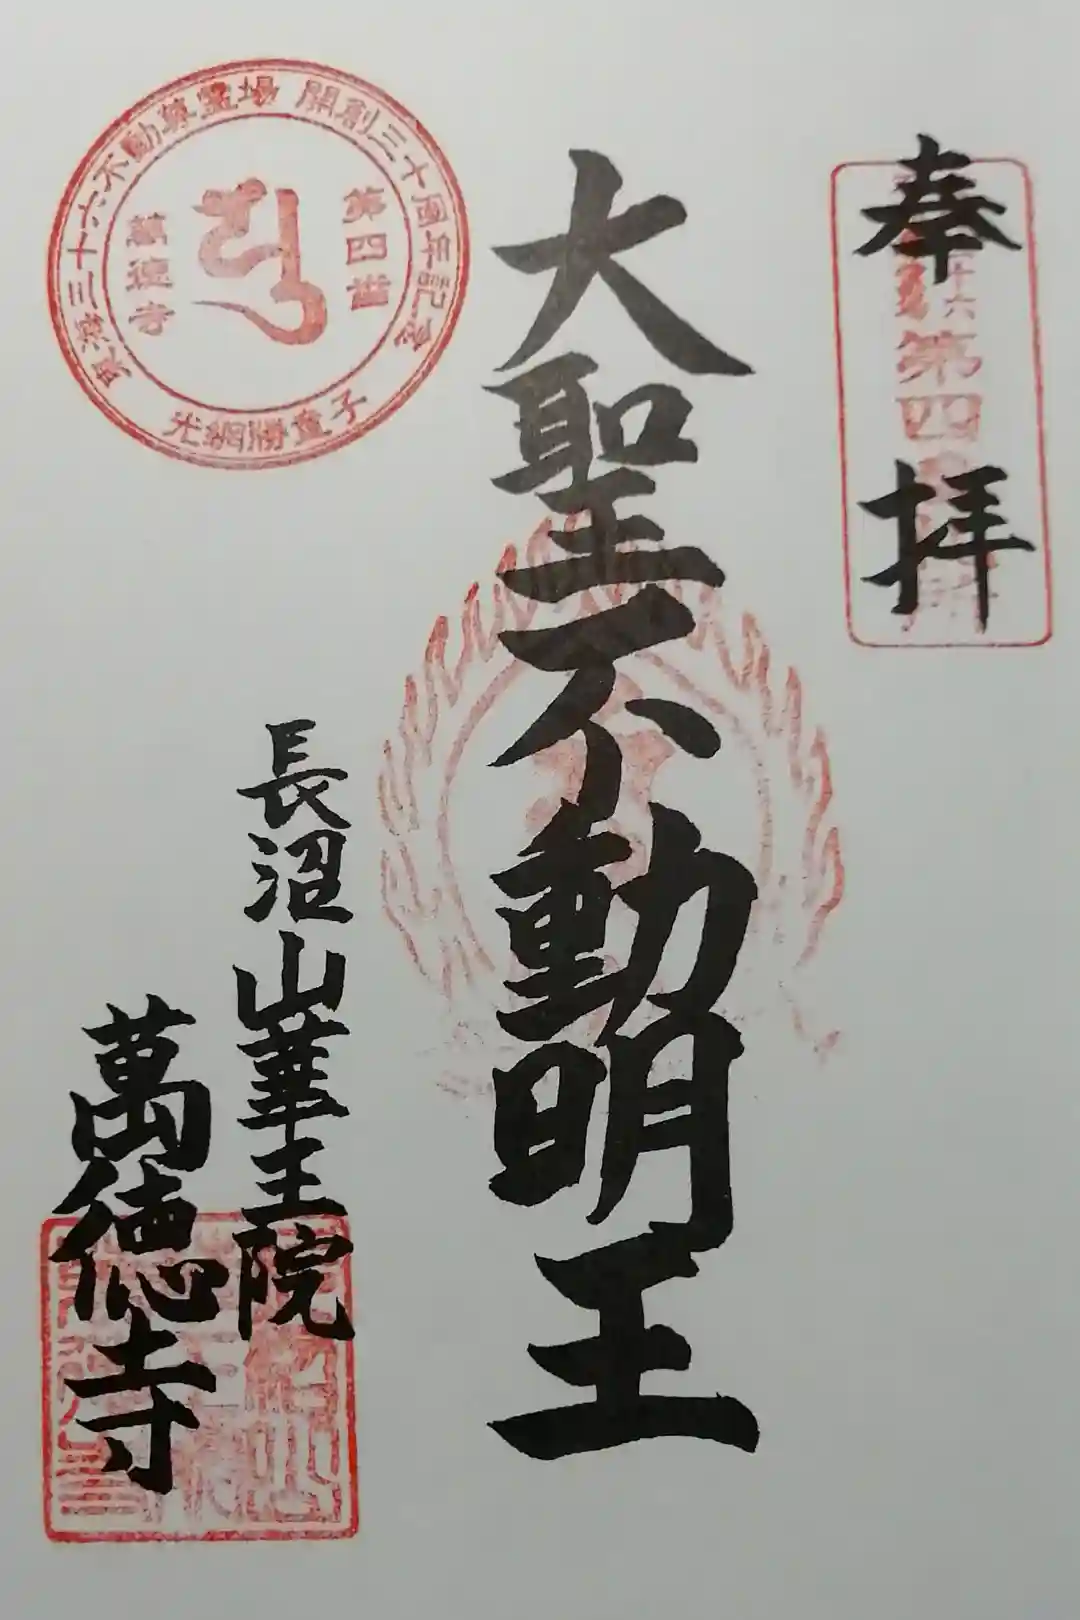 奉拝
十六
第四
大聖不動明王
東海三十六不動尊霊場 開創三十周年記念
第四番
萬徳寺
光網勝童子
長沼山華王院
萬徳寺